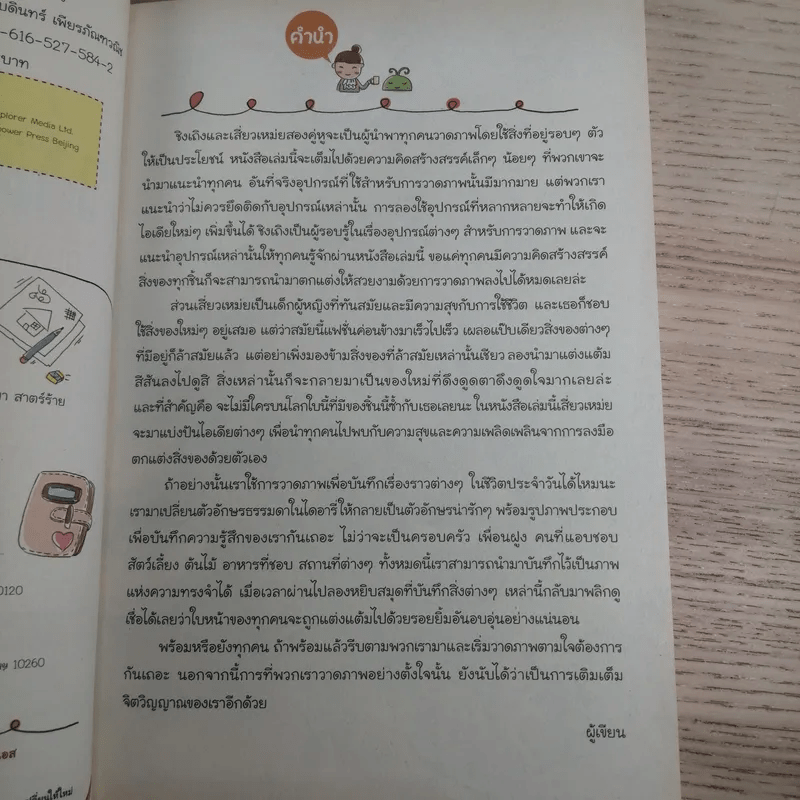 บดินทร์ เพียรภัณฑวณิช
-616-527-584-2
บาท
xplorer Media Ltd.
ower Press Beijing
สาตร์ร้าย
0120
10260
อส
คำนำ
ชิงเถิงและเสี่ยวเหม่ยสองคู่หูจะเป็นผู้นำพาทุกคนวาดภาพโดยใช้สิ่งที่อยู่รอบๆ ตัว
ให้เป็นประโยชน์ หนังสือเล่มนี้จะเต็มไปด้วยความคิดสร้างสรรค์เล็กๆ น้อยๆ ที่พวกเขาจะ
นำมาแนะนำทุกคน อันที่จริงอุปกรณ์ที่ใช้สำหรับการวาดภาพนั้นมีมากมาย แต่พวกเรา
แนะนำว่าไม่ควรยึดติดกับอุปกรณ์เหล่านั้น การลองใช้อุปกรณ์ที่หลากหลายจะทำให้เกิด
ไอเดียใหม่ๆ เพิ่มขึ้นได้ ชิงเถิงเป็นผู้รอบรู้ในเรื่องอุปกรณ์ต่างๆ สำหรับการวาดภาพ และจะ
แนะนำอุปกรณ์เหล่านั้นให้ทุกคนรู้จักผ่านหนังสือเล่มนี้ ขอแค่ทุกคนมีความคิดสร้างสรรค์
สิ่งของทุกชิ้นก็จะสามารถนำมาตกแต่งให้สวยงามด้วยการวาดภาพลงไปได้หมดเลยล่ะ
ส่วนเสี่ยวเหม่ยเป็นเด็กผู้หญิงที่ทันสมัยและมีความสุขกับการใช้ชีวิต และเธอก็ชอบ
ใช้สิ่งของใหม่ๆ อยู่เสมอ แต่ว่าสมัยนี้แฟชั่นค่อนข้างมาเร็วไปเร็ว เผลอแป๊บเดียวสิ่งของต่างๆ
ที่มีอยู่ก็ล้าสมัยแล้ว แต่อย่าเพิ่งมองข้ามสิ่งของที่ล้าสมัยเหล่านั้นเชียว ลองนำมาแต่งแต้ม
สีสันลงไปดูสิ สิ่งเหล่านั้นก็จะกลายมาเป็นของใหม่ที่ดึงดูดตาดึงดูดใจมากเลยล่ะ
และที่สำคัญคือ จะไม่มีใครบนโลกใบนี้ที่มีของชิ้นนี้ซ้ำกับเธอเลยนะ ในหนังสือเล่มนี้เสี่ยวเหม่ย
จะมาแบ่งปันไอเดียต่างๆ เพื่อนำทุกคนไปพบกับความสุขและความเพลิดเพลินจากการลงมือ
ตกแต่งสิ่งของด้วยตัวเอง
ถ้าอย่างนั้นเราใช้การวาดภาพเพื่อบันทึกเรื่องราวต่างๆ ในชีวิตประจำวันได้ไหมนะ
เรามาเปลี่ยนตัวอักษรธรรมดาในไดอารี่ให้กลายเป็นตัวอักษรน่ารักๆ พร้อมรูปภาพประกอบ
เพื่อบันทึกความรู้สึกของเรากันเถอะ ไม่ว่าจะเป็นครอบครัว เพื่อนฝูง คนที่แอบชอบ
สัตว์เลี้ยง ต้นไม้ อาหารที่ชอบ สถานที่ต่างๆ ทั้งหมดนี้เราสามารถนำมาบันทึกไว้เป็นภาพ
แห่งความทรงจำได้ เมื่อเวลาผ่านไปลองหยิบสมุดที่บันทึกสิ่งต่างๆ เหล่านี้กลับมาพลิกดู
เชื่อได้เลยว่าใบหน้าของทุกคนจะถูกแต่งแต้มไปด้วยรอยยิ้มอันอบอุ่นอย่างแน่นอน
พร้อมหรือยังทุกคน ถ้าพร้อมแล้วรีบตามพวกเรามาและเริ่มวาดภาพตามใจต้องการ
กันเถอะ นอกจากนี้การที่พวกเราวาดภาพอย่างตั้งใจนั้น ยังนับได้ว่าเป็นการเติมเต็ม
จิตวิญญาณของเราอีกด้วย
ผู้เขียน